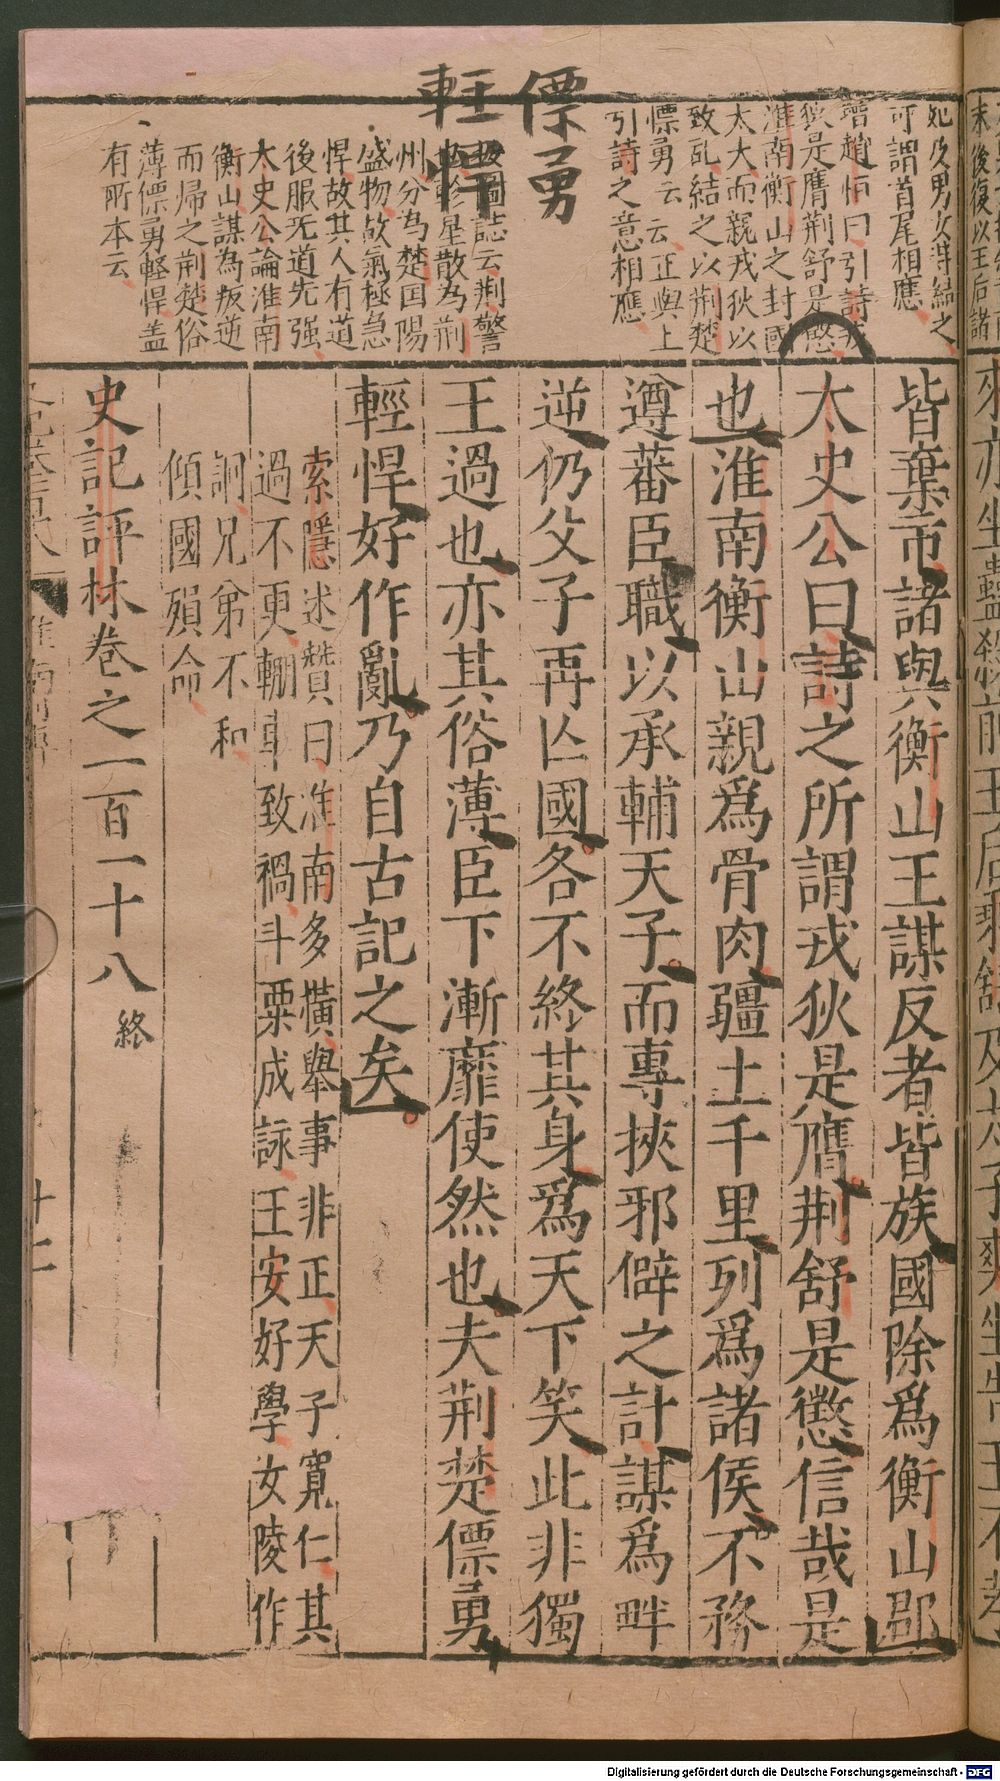 僄勇
輕悍
死及男女淫結之
可謂首尾相應
增趙恒曰引詩戎
狄是膺荆舒是懲
淮南衡山之封國
太大而親戎狄以
致乱結之以荆楚
僄勇云云正與上
引詩之意相應
按圖誌云荆警
軫星散為荆
州分為楚国陽
盛物故氣極急
悍故其人有道
後服无道先强
太史公論淮南
衡山謀為叛逆
而帰之荆楚俗
薄僄勇輕悍盖
有所本云
皆棄市諸與衡山王謀反者皆族國除爲衡山郡
太史公曰詩之所謂戎狄是膺荆舒是懲信哉是
也淮南衡山親爲骨肉疆土千里列爲諸侯不務
遵蕃臣職以承輔天子而專挾邪僻之計謀爲畔
逆仍父子再亾國各不終其身爲天下笑此非獨
王過也亦其俗薄臣下漸靡使然也夫荆楚僄勇
輕悍好作亂乃自古記之矣
索隱述贊曰淮南多橫舉事非正天子寬仁其
過不更輣車致禍斗粟成詠王安好學女陵作
詗兄弟不和
傾國殞命
史記評林卷之一百一十八 終
Digitalisierung gefördert durch die Deutsche Forschungsgemeinschaft - DFG